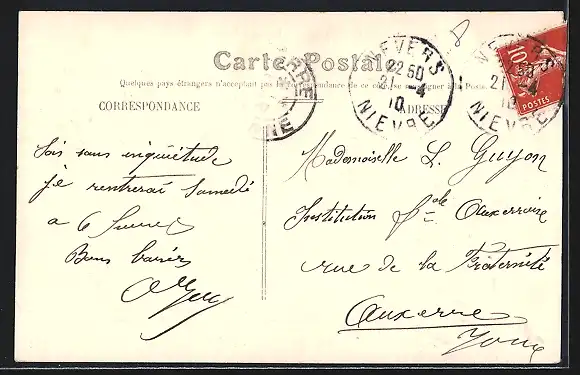 Carte Postale
Quelques pays étrangers n'acceptent pas la correspondance de ce côté. se renseigner à la Poste
CORRESPONDANCE
ADRESSE
NEVERS
22 50
21 - 4
10
NIEVRE
NEVERS
21 - 4
10
NIEVRE
10
POSTES
Sois sans inquiétude
je rentrerai Samedi
a 6 heures
Bons baisers
Mademoiselle L. Guyon
Institution Auxerroise
rue de la Fraternité
Auxerre
Yonne